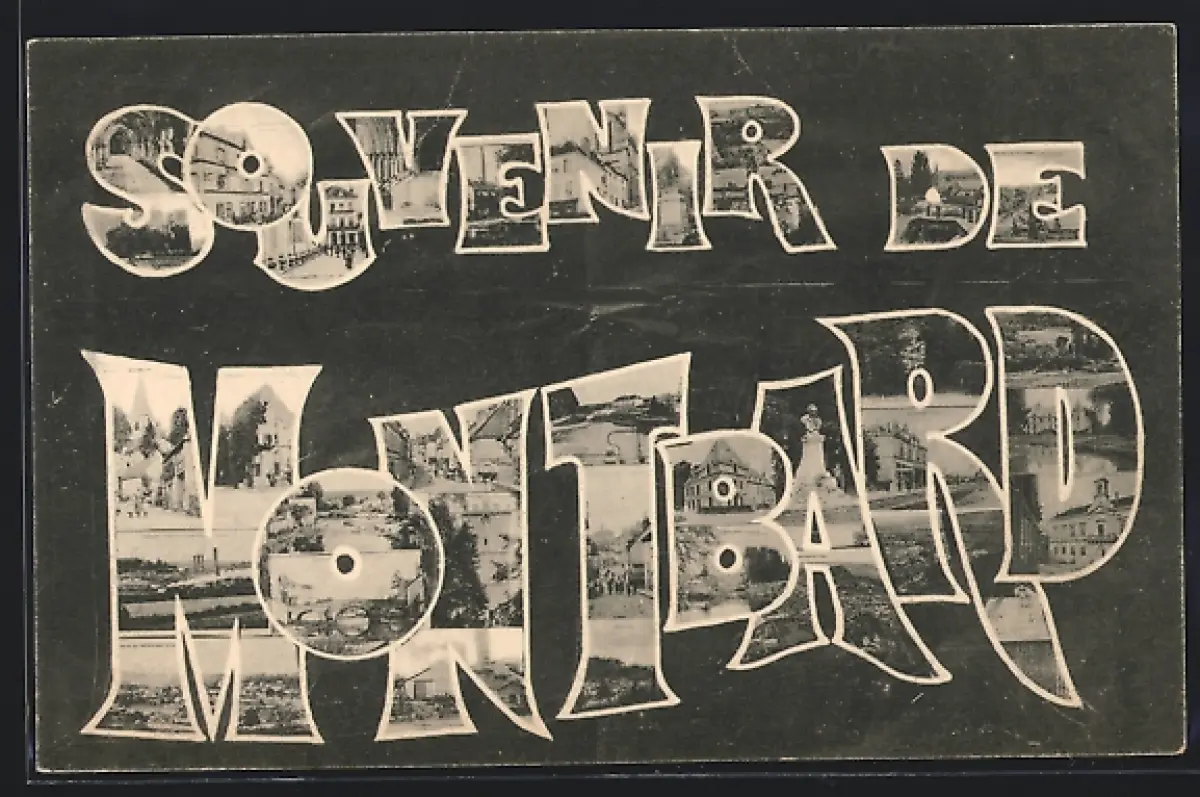 SOUVENIR DE
MONTBARD